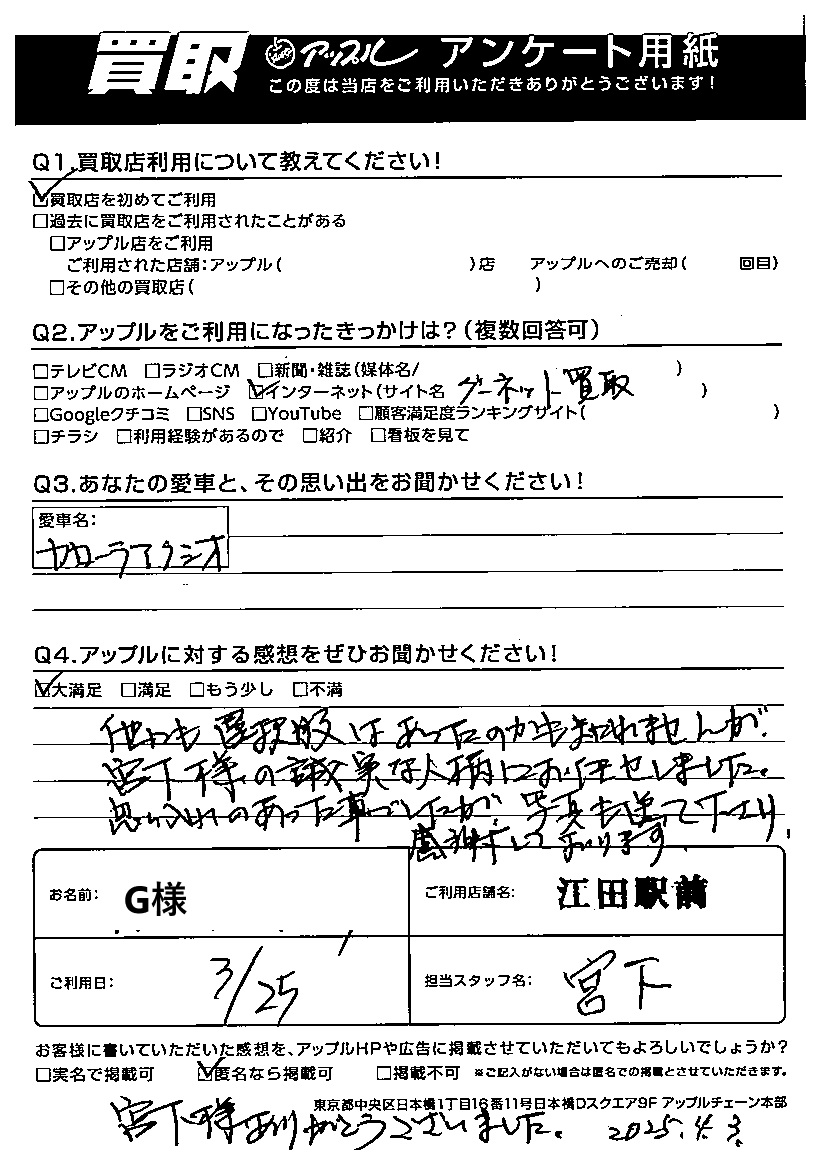 買取 アップル アンケート用紙
この度は当店をご利用いただきありがとうございます!
Q1.買取店利用について教えてください!
☑買取店を初めてご利用
□過去に買取店をご利用されたことがある
□アップル店をご利用
ご利用された店舗:アップル( )店 アップルへのご売却( 回目)
□その他の買取店( )
Q2.アップルをご利用になったきっかけは?(複数回答可)
□テレビCM □ラジオCM □新聞・雑誌(媒体名/ )
□アップルのホームページ ☑インターネット(サイト名 グーネット買取 )
□Googleクチコミ □SNS □YouTube □顧客満足度ランキングサイト( )
□チラシ □利用経験があるので □紹介 □看板を見て
Q3.あなたの愛車と、その思い出をお聞かせください!
愛車名:
カローラアクシオ
Q4.アップルに対する感想をぜひお聞かせください!
☑大満足 □満足 □もう少し □不満
他にも選択肢はあったのかもしれませんが、
宮下様の誠実な人柄にお任せしました。
思い入れのあった車でしたが、写真も送って下さり、
感謝しております。
お名前: G様 ご利用店舗名: 江田駅前
ご利用日: 3/25 担当スタッフ名: 宮下
お客様に書いていただいた感想を、アップルHPや広告に掲載させていただいてもよろしいでしょうか?
□実名で掲載可 ☑匿名なら掲載可 □掲載不可 ※ご記入がない場合は匿名での掲載とさせていただきます。
東京都中央区日本橋1丁目16番11号日本橋Dスクエア9F アップルチェーン本部
宮下様ありがとうございました。 2025.4.3.